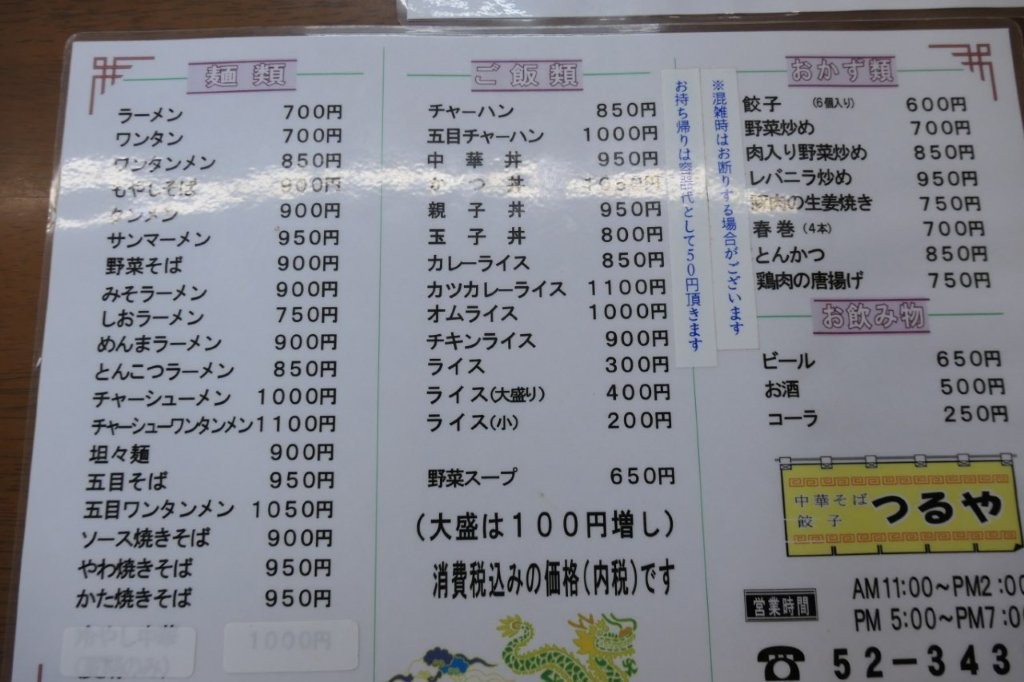 麺類
ラーメン 700円
ワンタン 700円
ワンタンメン 850円
もやしそば 900円
タンメン 900円
サンマーメン 950円
野菜そば 900円
みそラーメン 900円
しおラーメン 750円
めんまラーメン 900円
とんこつラーメン 850円
チャーシューメン 1000円
チャーシューワンタンメン 1100円
坦々麺 900円
五目そば 950円
五目ワンタンメン 1050円
ソース焼きそば 900円
やわ焼きそば 950円
かた焼きそば 950円
冷やし中華 1000円
ご飯類
チャーハン 850円
五目チャーハン 1000円
中華丼 950円
かつ丼
親子丼 950円
玉子丼 800円
カレーライス 850円
カツカレーライス 1100円
オムライス 1000円
チキンライス 900円
ライス 300円
ライス(大盛り) 400円
ライス(小) 200円
野菜スープ 650円
(大盛は100円増し)
消費税込みの価格(内税)です
お持ち帰りは容器代として50円頂きます
※混雑時はお断りする場合がございます
おかず類
餃子 (6個入り) 600円
野菜炒め 700円
肉入り野菜炒め 850円
レバニラ炒め 950円
豚肉の生姜焼き 750円
春巻(4本) 700円
とんかつ 850円
鶏肉の唐揚げ 750円
お飲み物
ビール 650円
お酒 500円
コーラ 250円
中華そば
餃子
つるや
営業時間
AM11:00~PM2:00
PM 5:00~PM7:0
52-343